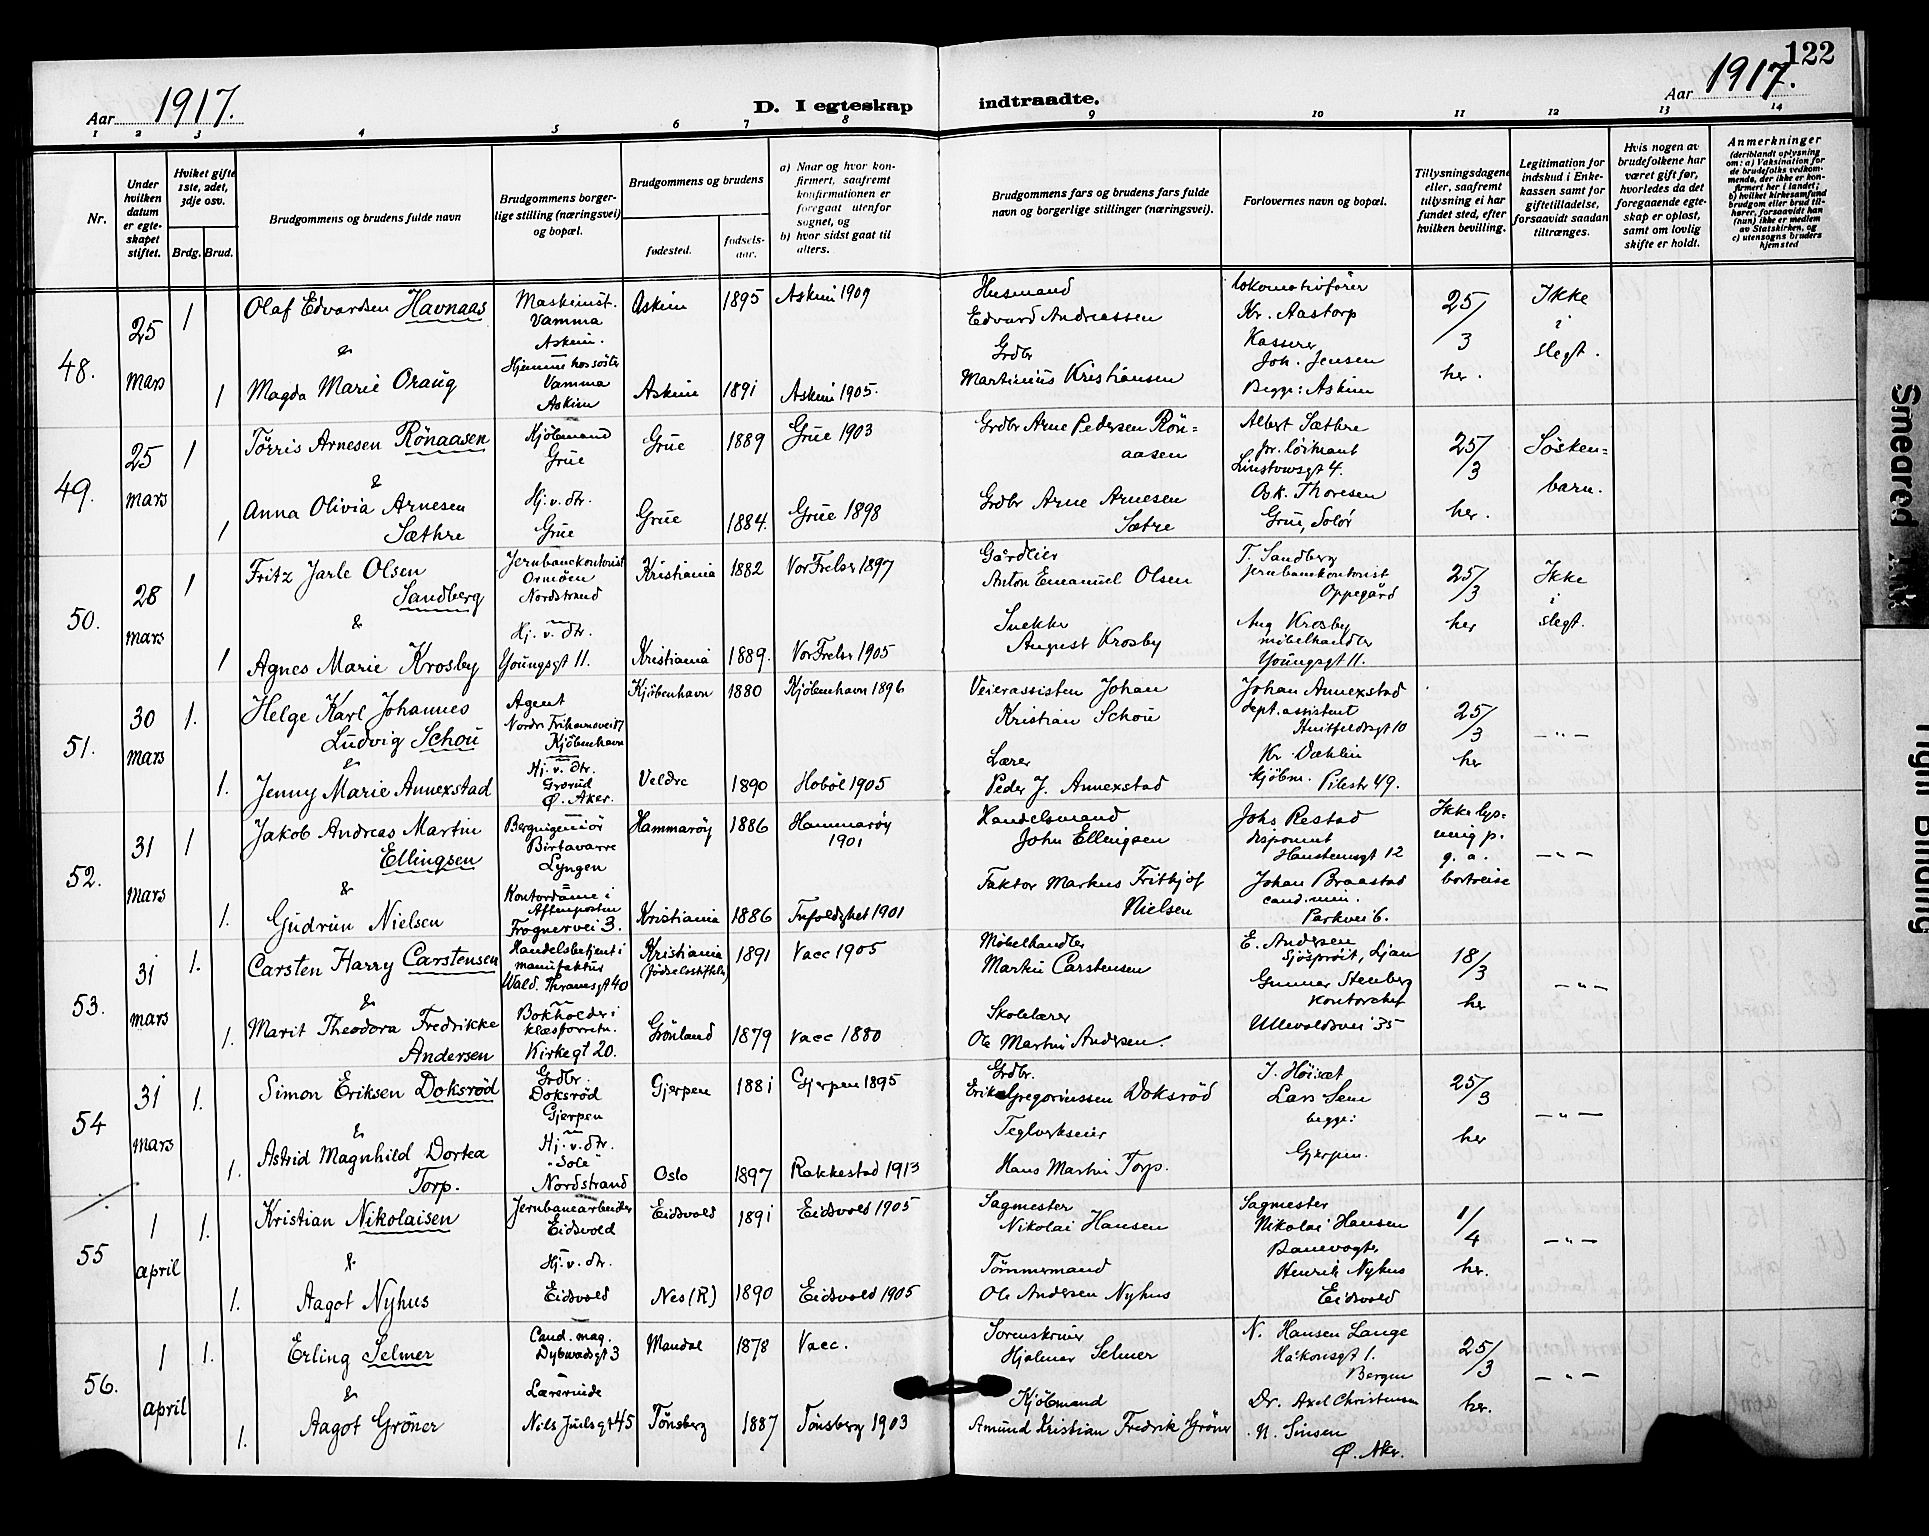 122
Aar 1917.
D. I egteskap indtraadte.
Aar 1917.
1 2 3 4 5 6 7 8 9 10 11 12 13 14
Nr.
Under hvilken datum er egteskapet stiftet.
Hviket gifte 1ste, 2det, 3dje osv.
Brdg. Brud.
Brudgommens og brudens fulde navn
Brudgommens borgerlige stilling (næringsvei) og bopæl.
Brudgommens og brudens
fødested.
fødselsaar.
a) Naar og hvor konfirmert, saafremt konfirmationen er foregaat utenfor sognet, og
b) hvor sidst gaat til alters.
Brudgommens fars og brudens fars fulde navn og borgerlige stillinger (næringsvei).
Forlovernes navn og bopæl.
Tillysningsdagene eller, saafremt tillysning ei har fundet sted, efter hvilken bevilling.
Legitimation for indskud i Enkekassen samt for giftetilladelse, forsaavidt saadan tiltrænges.
Hvis nogen av brudefolkene har været gift før, hvorledes da det foregaaende egteskap er opløst, samt om lovlig skifte er holdt.
Anmerkninger
(deriblandt oplysning om: a) Vaksination for de brudefolks vedkommende, der ikke er konfirmert her i landet; b) hvilket kirkesamfund brudgom eller brud tilhører, forsaavidt han (hun) ikke er medlem av Statskirken, og c) utensogns bruders hjemsted
48.
25 mars
1
Olaf Edvardsen Havnaas
&
1
Magda Marie Oraug
Maskinist. Vamma Askim.
Hjemme hos søster Vamma Askim
Askim 1895 Askim 1909
Askim 1891 Askim 1905.
Husmand
Edvard Andreassen
Grdbr
Martinius Kristiansen
Lokomotivfører
Kr. Aastorp
Kasserer
Joh. Jensen
Begge: Askim
25/3 her.
Ikke i slegt.
49.
25 mars
1
Tørris Arnesen Rönaasen
&
1
Anna Olivia Arnesen Sæthre
Kjöbmand Grue
Hj. v. dtr. Grue
Grue 1889 Grue 1903
Grue 1884. Grue 1898
Grdbr Arne Pedersen Rönaasen
Grdbr Arne Arnesen Sætre
Albert Sæthre
pr. löitnant
Linstowsgt 4.
Osk. Thoresen
Grue, Solör
25/3 her.
Søskenbarn.
50.
28 mars
1
Fritz Jarle Olsen Sandberg
&
1
Agnes Marie Krosby
Jernbanekontorist Ormöen Nordstrand
Hj. v. dtr. Youngsgt 11.
Kristiania 1882 Vor Frelser 1897
Kristiania 1889. Vor Frelser 1905
Gårdeier
Anton Emanuel Olsen
Snekker
August Krosby
T. Sandberg
Jernbanekontorist
Oppegård
Aug Krosby
möbelhandler
Youngsgt 11.
25/3 her
Ikke i slegt.
51.
30 mars
1.
Helge Karl Johannes Ludvig Schou
&
1.
Jenny Marie Annexstad
Agent
Nordre Frihavnsvei 17
Kjöbenhavn
Hj. v. dtr. Grorud Ø. Aker.
Kjöbenhavn 1880 Kjöbenhavn 1896
Veldre 1890 Hoböl 1905
Veierassistent Johan Kristian Schou
Lærer
Peder J. Annexstad
Johan Annexstad
dept. assistent
Huitfeldtsgt 10
Kr. Dæhlin
kjöbm. Pilestr 49.
25/3 her
— " —
52.
31 mars
1
Jakob Andreas Martin Ellingsen
&
1.
Gudrun Nielsen
Bergingeniör Birtavarre Lyngen
Kontordame i Aftenposten Frognervei 3.
Hammaröy 1886 Hammaröy 1901
Kristiania 1886 Trefoldighet 1901
Handelsmand
John Ellingsen
Faktor Markus Fritjof Nielsen
Johs Restad
disponent
Hansteensgt 12
Johan Braastad
cand. min.
Parkvei 6.
Ikke lysning p. g. a. bortreise
— " —
53.
31 mars
1.
Carsten Harry Carstensen
&
1.
Marit Theodora Fredrikke Andersen
Handelsbetjent i manufaktur
Wald. Thranesgt 40
Bokholder i klæsforretn.
Kirkegt 20.
Kristiania (Födselsstiftelse) 1891 Vacc 1905
Grönland 1879 Vacc 1880
Möbelhandler
Martin Carstensen
Skolelærer
Ole Martin Andersen.
E. Andersen
Sjöspröit, Ljan
Gunnar Stenberg
kontorchef
Ullevoldsvei 35
18/3 her
— " —
54
31 mars
1.
Simon Eriksen Doksröd
&
1.
Astrid Magnhild Dortea Torp.
Grdbr. Doksröd Gjerpen
Hj. v. dtr. "Sole" Nordstrand
Gjerpen 1881 Gjerpen 1895
Oslo 1897 Rakkestad 1913
Grdbr.
Erik Gregoriussen Doksröd
Teglverkseier
Hans Martin Torp.
J. Höisæt
Lars Sem
begge:
Gjerpen.
25/3 her
— " —
55
1 april
1.
Kristian Nikolaisen
&
1.
Aagot Nyhus
Jernbanearbeider Eidsvold
Hj. v. dtr. Eidsvold
Eidsvold 1891 Eidsvold 1905
Nes (R) 1890 Eidsvold 1905
Sagmester
Nikolai Hansen
Tömmermand
Ole Andersen Nyhus
Sagmester
Nikolai Hansen
Banevogter
Henrik Nyhus
Eidsvold
1/4 her.
— " —
56.
1 april
1.
Erling Selmer
&
1.
Aagot Gröner
Cand. mag. Dybwadsgt 3
Lærerinde
Nils Juelsgt 45
Mandal 1878 Vacc.
Tönsberg 1887 Tönsberg 1903
Sorenskriver
Hjalmar Selmer
Kjöbmand
Amund Kristian Fredrik Gröner
N. Hansen Lange
Håkonsgt 1.
Bergen
Dr. Axel Christensen
N. Sinsen
Ø. Aker.
25/3 her.
— " —
Smeared Ink
Tight Binding